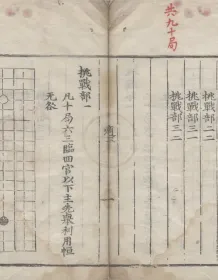 共九十局
挑戰部二二
挑戰部三一
挑戰部三二
挑戰部一
凡十局六三臨四官以下主先眾利用恒
无咎